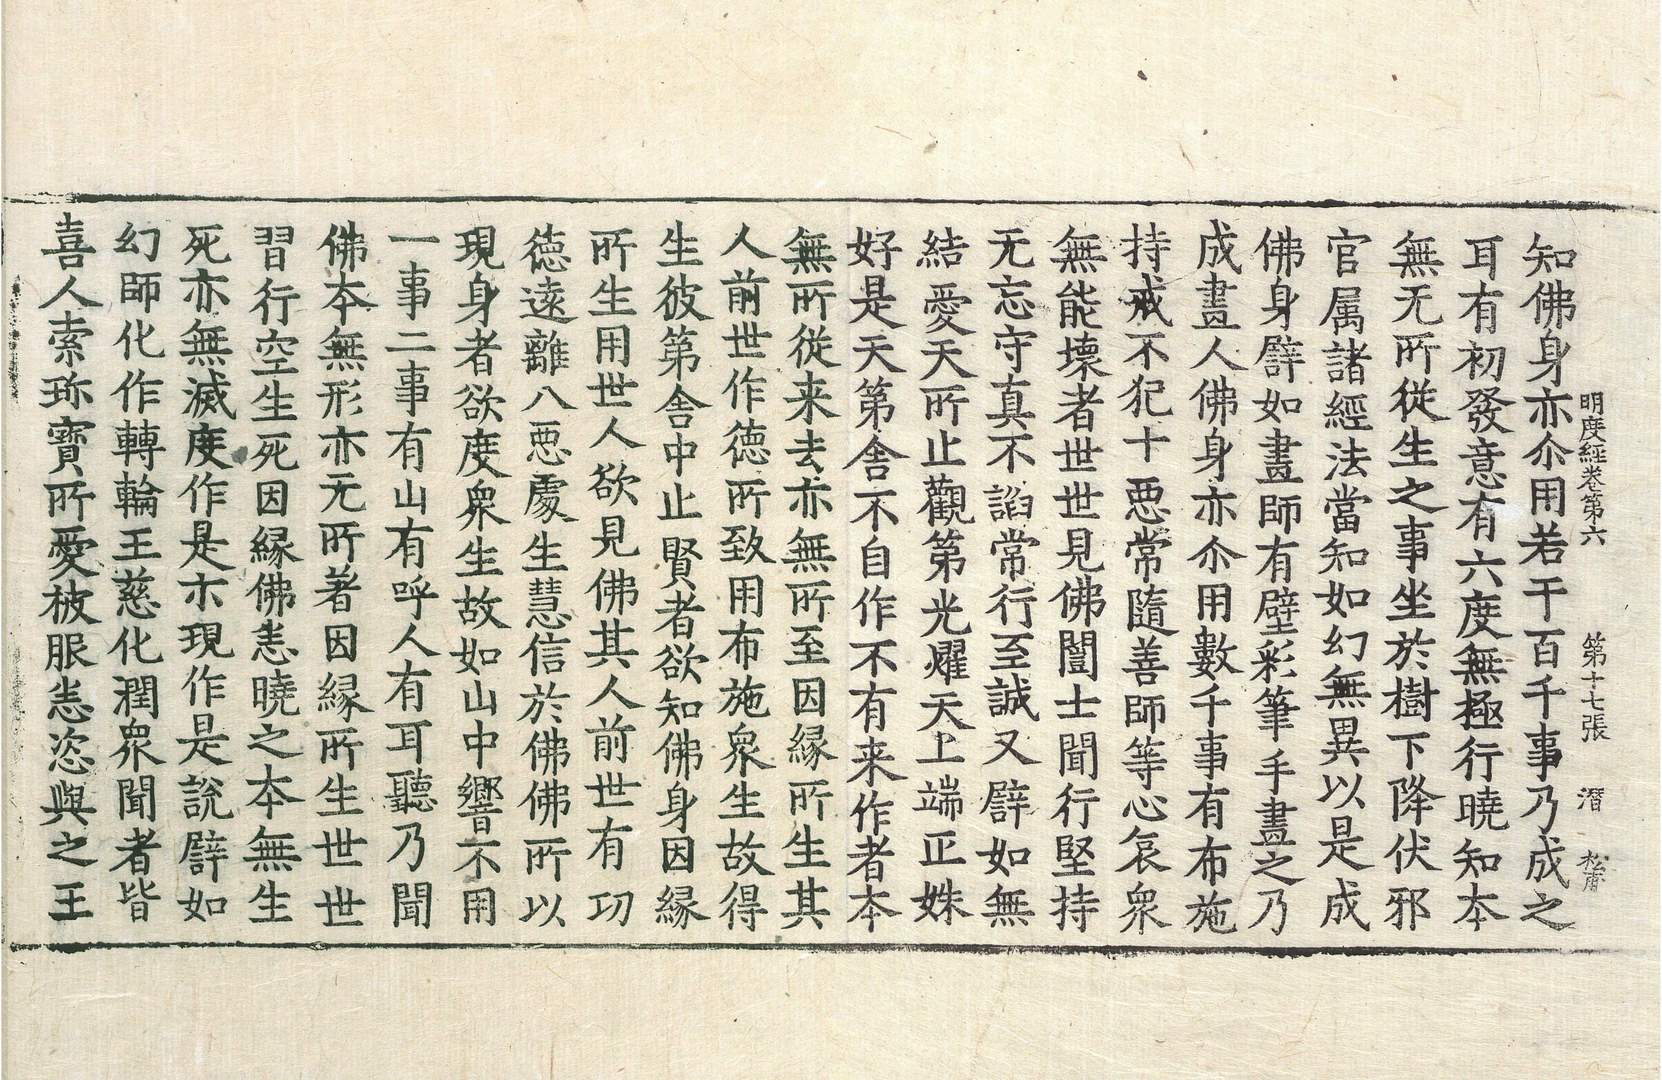 明度経卷第六　第十七張　潛　松庿
知佛身亦尒用若干百千事乃成之
耳有初發意有六度無極行曉知本
無无所從生之事坐於樹下降伏邪
官属諸經法當知如幻無異以是成
佛身譬如畫師有壁彩筆手畫之乃
成畫人佛身亦尒用數千事有布施
持戒不犯十惡常隨善師等心哀衆
無能壞者世世見佛闓士聞行堅持
无忘守真不謟常行至誠又譬如無
結愛天所止觀第光燿天上端正姝
好是天第舍不自作不有来作者本
無所從来去亦無所至因緣所生其
人前世作德所致用布施衆生故得
生彼第舍中止賢者欲知佛身因緣
所生用世人欲見佛其人前世有功
德遠離八惡處生慧信於佛佛所以
現身者欲度衆生故如山中響不用
一事二事有山有呼人有耳聽乃聞
佛本無形亦无所著因緣所生世世
習行空生死因緣佛恚曉之本無生
死亦無滅度作是示現作是說譬如
幻師化作轉輪王慈化潤衆聞者皆
喜人索珎寶所愛被服恚恣與之王